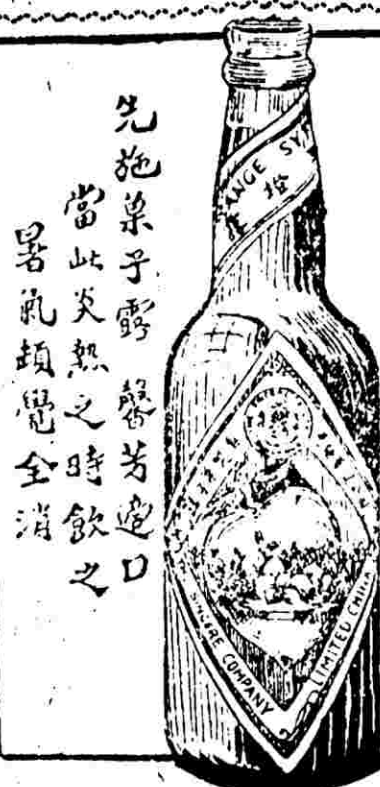 先施菓子露 馨芳適口
當此炎熱之時飲之
暑氣頓覺全消
ANGE SY
橙
SINCERE COMPANY
LIMITED CHINA